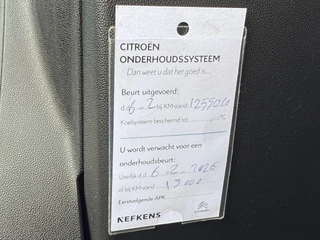 CITROËN
ONDERHOUDSSYSTEEM
Dan weet u dat het goed is...
Beurt uitgevoerd:
d.d 6-2 bij KM-stand:
Koelsysteem beschermd tot: °C
U wordt verwacht voor een
onderhoudsbeurt:
Uiterlijk d.d. 6-2-2026
of bij KM-stand:
Eerstvolgende APK
NEFKENS